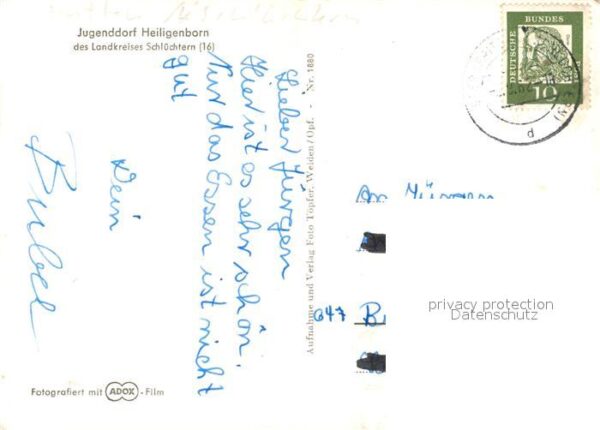 Jugenddorf Heiligenborn
des Landkreises Schlüchtern (16)
Lieber Jürgen
Hier ist es sehr schön.
Nur das Essen ist nicht
gut
Dein
Aufnahme und Verlag Foto Töpfer, Weiden/Opf. - Nr. 1880
DEUTSCHE
BUNDES
10
An Jürgen
647 B
privacy protection
Datenschutz
Fotografiert mit ADOX-Film